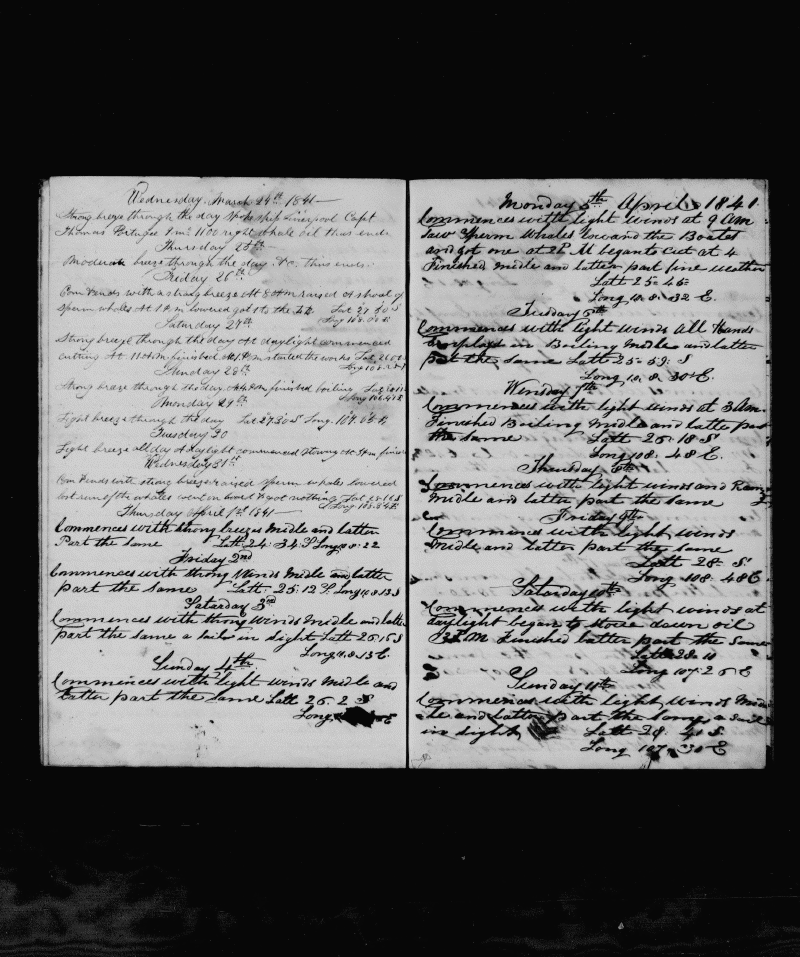 Wednesday March 24th 1841
Strong breeze through the day Spoke ship Liverpool Capt
Thomas 1100 right whale oil thus ends
Thursday 25th
Moderate breeze through the day &c thus ends
Friday 26th
with a strong breeze At 8 AM raised a shoal of
Sperm whales At lowered got Lat 27
Long 108.00 E
Saturday 27th
Strong breeze through the day At daylight commenced
cutting At 11 AM finished started the works Lat
Sunday 28th
Strong breeze through the day At finished boiling
Monday 29th
Light breeze through the day Lat 27.30 S Long.
Tuesday 30
Light breeze all day At daylight commenced At
Wednesday 31st
with strong breeze raised sperm whales lowered
of the whales went on board & got nothing Lat
Thursday April 1st 1841
Commences with strong breezes Midle and latter
Part the same Latt 24 : 34 S Long 108 : 22
Friday 2nd
Commences with strong Winds Midle and latter
part the same Latt 25 : 12 S Long
Satarday 3rd
Commences with strong Winds Midle and latter
part the same a sail in sight Latt 26 S
Long 108 13 E.
Sunday 4th
Commences with light winds Midle and
latter part the Same Latt 26. 2 S
Long E
Monday 5th April 1841
Commences with light winds at 9 Am
Saw Sperm Whales the Boates
and got one at 2 P M began to cut at 4
Finished Midle and latter part fine weather
Latt 25 = 45
Long 108 = 32 E.
Tuesday 6th
Commences with light winds All Hands
in Boiling Midle and latter
part the same Latt 25 - 59 : S
Long 108. 30 E.
Winsday 7th
Commences with light winds at 3 Am
Finished Boiling Midle and latter part
the same Latt 26 : 18 S
Long 108. 48 E.
Thursday 8th
Commences with light winds and Rain
Midle and latter part the same
Friday 9th
Commences with light winds
Midle and latter part the same
Latt 28 S
Long 108. 48 E
Satarday 10th
Commences with light winds at
daylight began to Stow down oil
P M Finished latter part the Same
Latt 28 11
Long 107. 26 E
Sunday 11th
Commences with light winds Mid
le and latter part the same a Sail
in Sight Latt 28 41 S.
Long 107 - 30 E